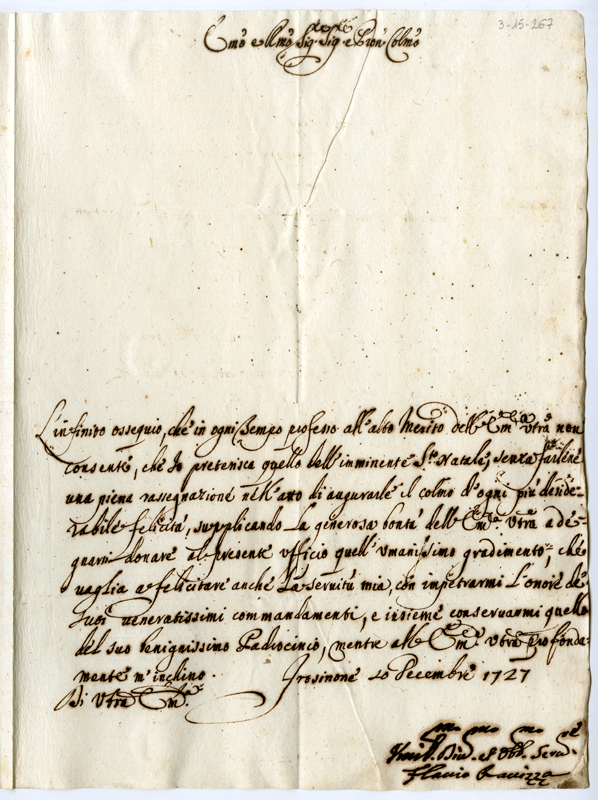 3-15-267
Emo e Rmo Sig. Sig. e Pron Colmo
L'infinito ossequio, che in ogni tempo professo all'alto Merito dell'Emza Vtra non
consente, che Io preterisca quello dell'imminente Sto Natale, senza farline
una piena rassegnazione nell'atto di augurarle il colmo d'ogni più deside-
rabile felicità, supplicando La generosa bontà dell'Emza Vtra a de-
gnarsi donare al presente ufficio quell'umanissimo gradimento, che
vaglia a felicitare anche La servitù mia, con impetrarmi L'onore de
suoi veneratissimi commandamenti, e insieme conservarmi quello
del suo benignissimo Padrocinio, mentre all'Emza Vtra profonda-
mente m'inclino. Frosinone 20 Decembre 1727
Di Vtra Emza
Humil. Div. et Obb. Serv.
Flavio Ravizza